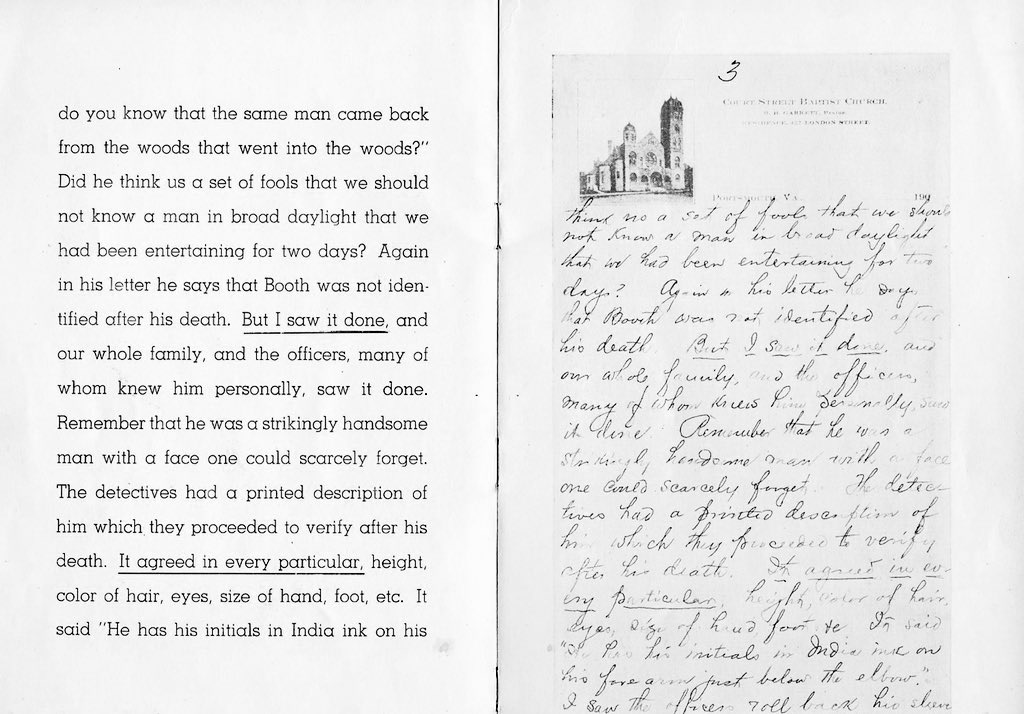 do you know that the same man came back
from the woods that went into the woods?"
Did he think us a set of fools that we should
not know a man in broad daylight that we
had been entertaining for two days? Again
in his letter he says that Booth was not iden-
tified after his death. But I saw it done, and
our whole family, and the officers, many of
whom knew him personally, saw it done.
Remember that he was a strikingly handsome
man with a face one could scarcely forget.
The detectives had a printed description of
him which they proceeded to verify after his
death. It agreed in every particular, height,
color of hair, eyes, size of hand, foot, etc. It
said "He has his initials in India ink on his
3
COURT STREET BAPTIST CHURCH.
R. B. GARRETT, PASTOR
RESIDENCE, 427 LONDON STREET.
PORTSMOUTH, VA. 190
think us a set of fools that we should
not know a man in broad daylight
that we had been entertaining for two
days? Again in his letter he says
that Booth was not identified after
his death. But I saw it done, and
our whole family, and the officers,
many of whom knew him personally, saw
it done. Remember that he was a
strikingly handsome man with a face
one could scarcely forget. The detec-
tives had a printed description of
him which they proceeded to verify
after his death. It agreed in ev-
ery particular, height, color of hair,
eyes, size of hand foot &c It said
"He has his initials in India ink on
his fore arm just below the elbow."
I saw the officers roll back his sleeve